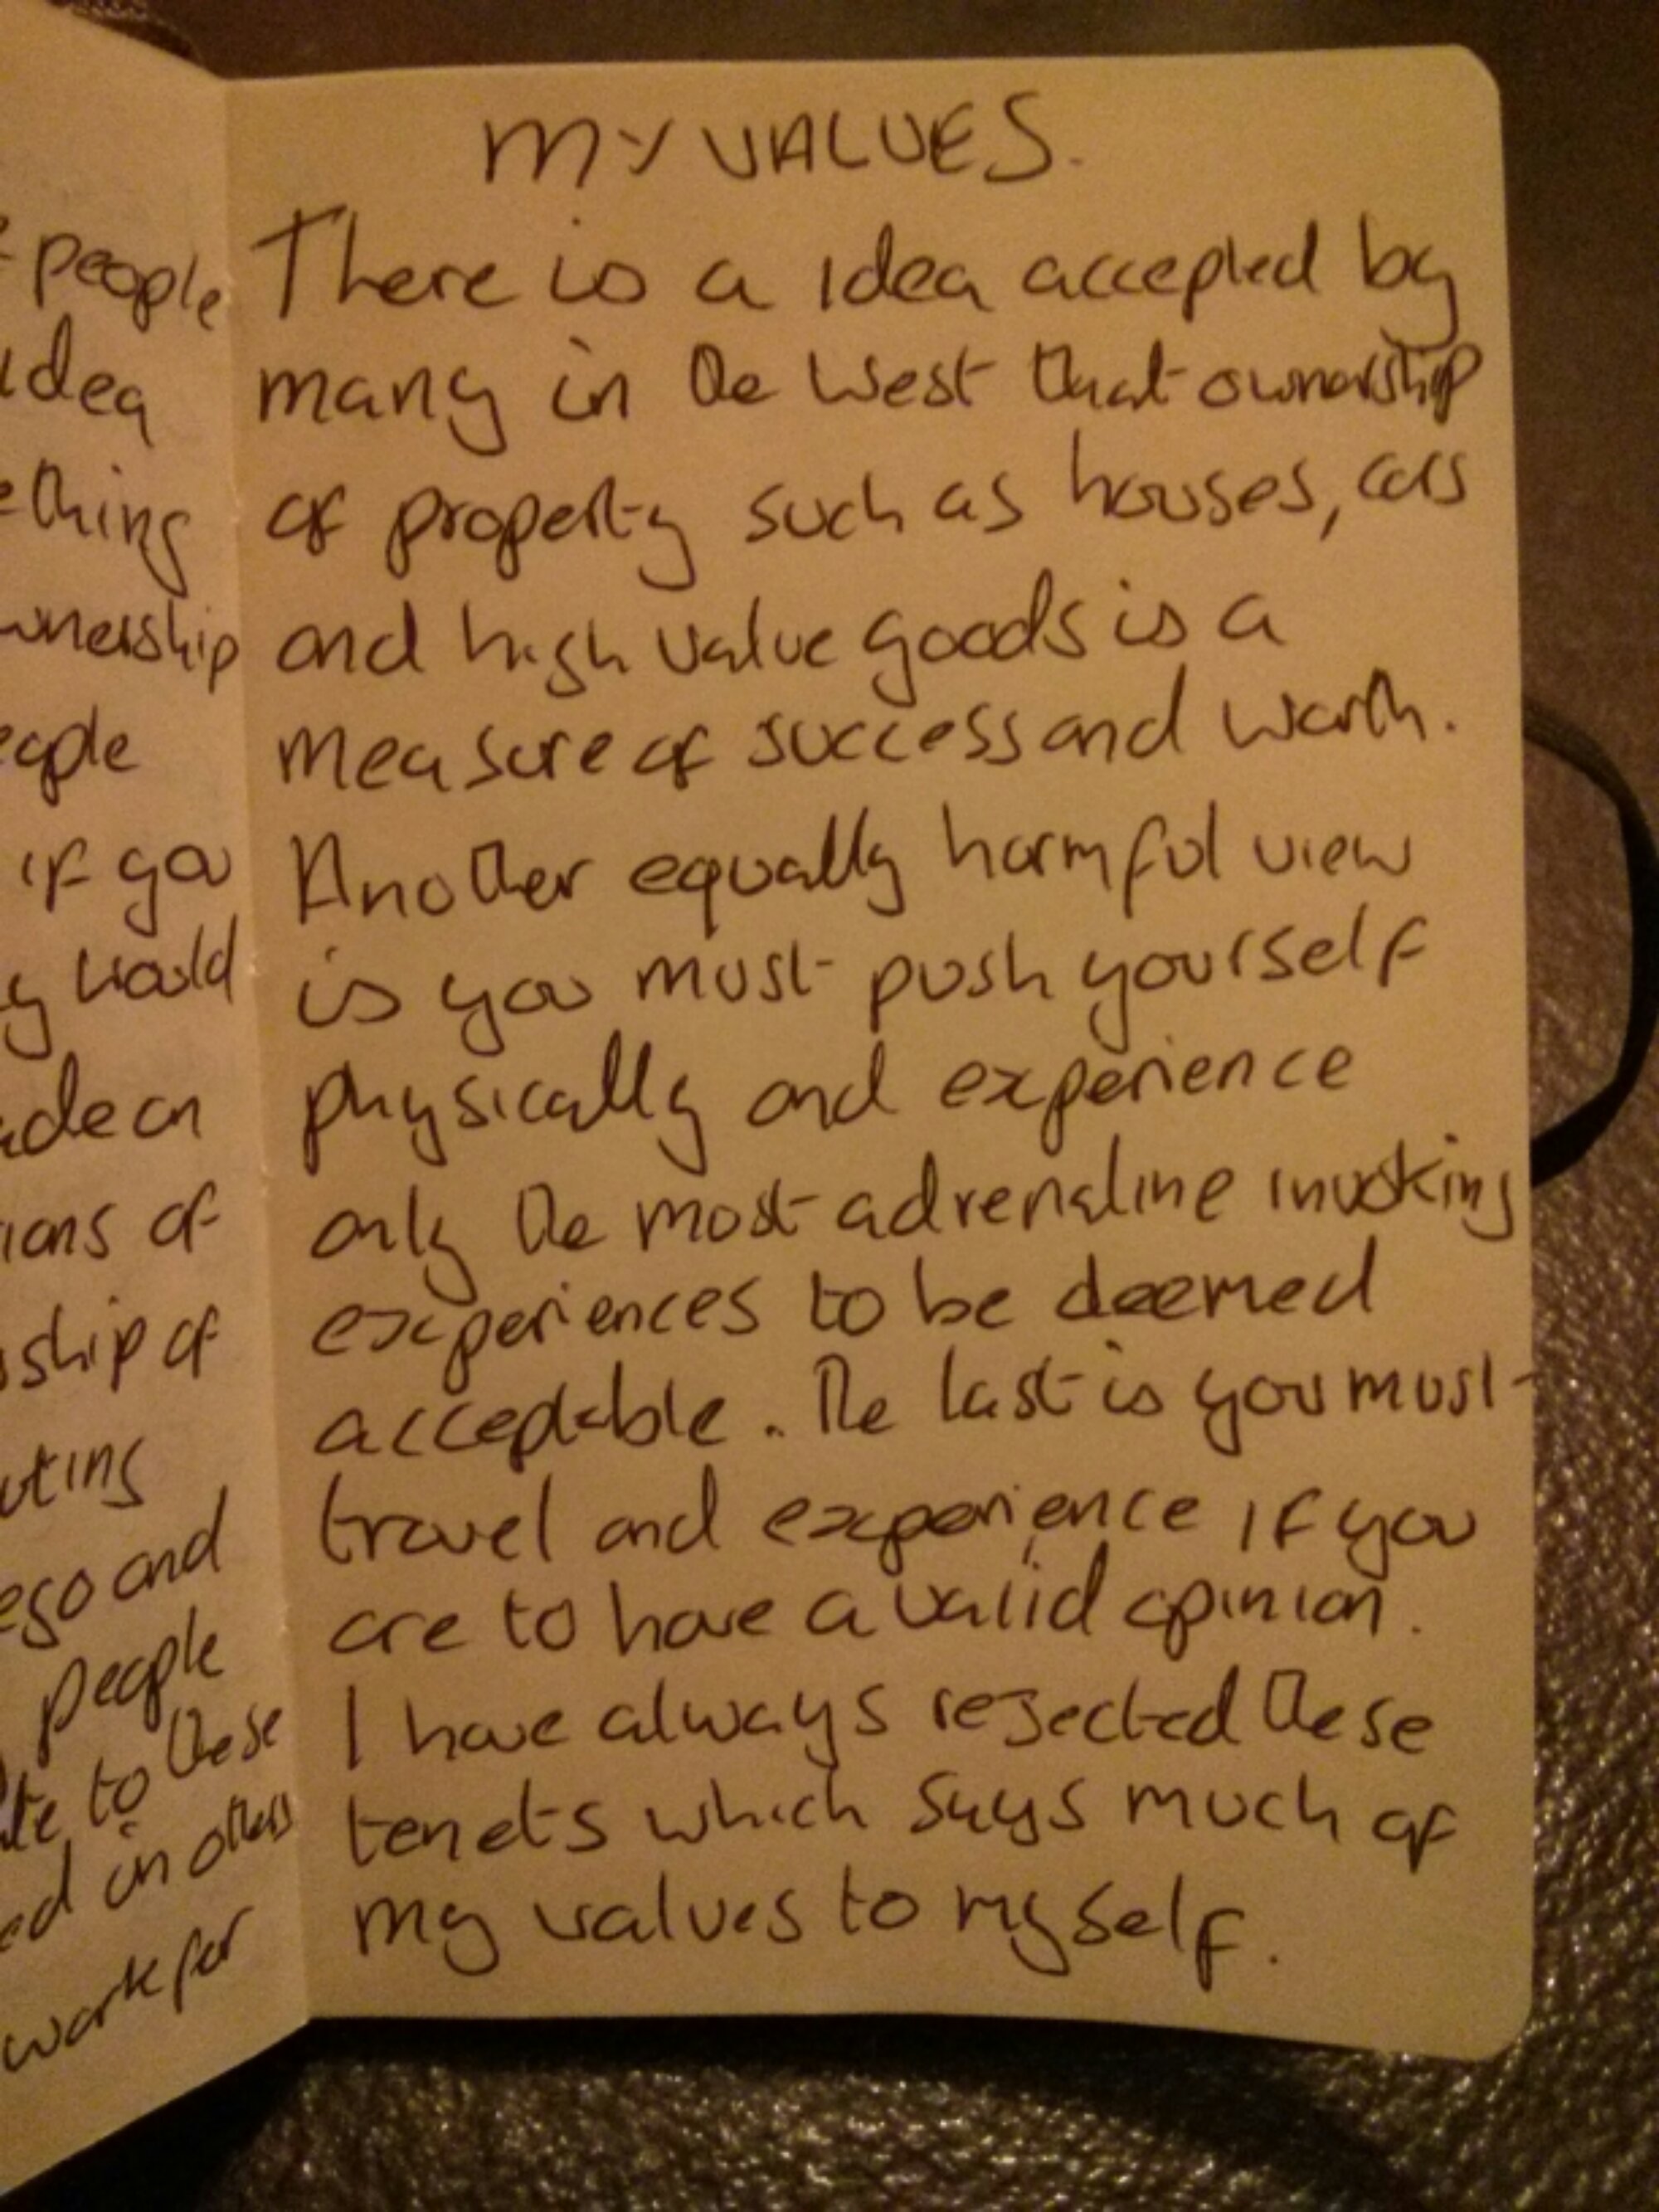 people
idea
thing
wnership
eople
if you
y would
ade on
ions of
ship of
uting
ego and
people
te to these
ed in others
work for
MY VALUES.
There is a idea accepted by
many in the West that ownership
of property such as houses, cars
and high value goods is a
measure of success and worth.
Another equally harmful view
is you must push yourself
physically and experience
only the most adrenaline invoking
experiences to be deemed
acceptable. The last is you must
travel and experience if you
are to have a valid opinion.
I have always rejected these
tenets which says much of
my values to myself.